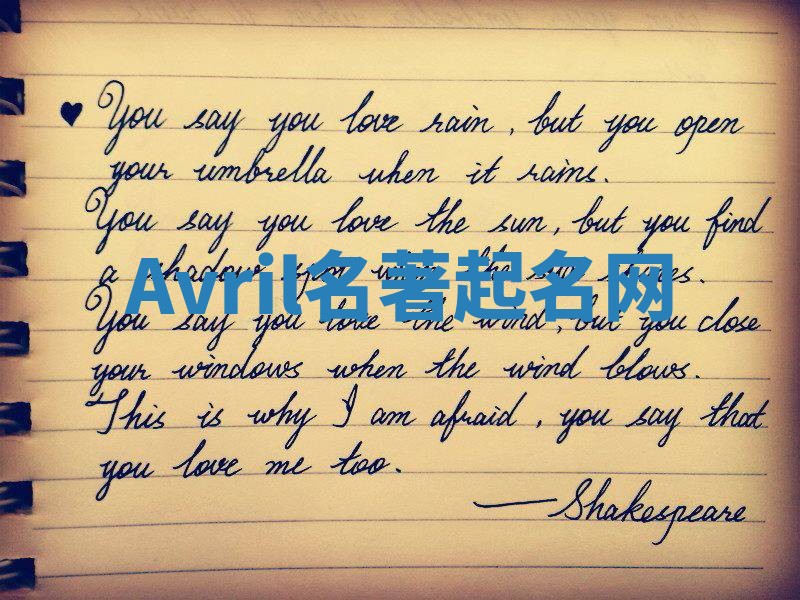 ♥ You say you love rain, but you open
your umbrella when it rains.
You say you love the sun, but you find
a shadow spot when the sun shines.
Avril名著起名网
You say you love the wind, but you close
your windows when the wind blows.
This is why I am afraid, you say that
you love me too.
—Shakespeare